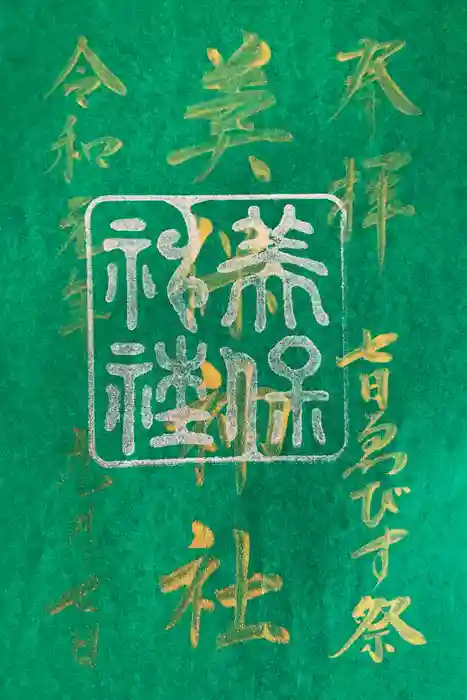 奉拝
七日ゑびす祭
美保神社
令和 年
月七日
美保
神社